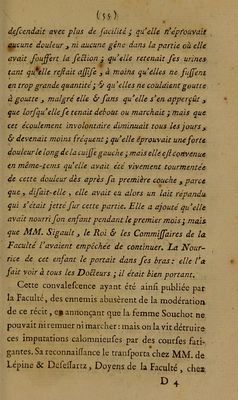 (55)
descendait avec plus de facilité ; qu'elle n'éprouvait
aucune douleur, ni aucune gêne dans la partie où elle
avait souffert la section ; qu'elle retenait ses urines
tant qu'elle restait assise, à moins qu'elles ne fussent
en trop grande quantité ; & qu'elles ne coulaient goutte
à goutte, malgré elle & sans qu'elle s'en apperçût,
que lorsqu'elle se tenait debout ou marchait ; mais que
cet écoulement involontaire diminuait tous les jours,
& devenait moins fréquent ; qu'elle éprouvait une forte
douleur le long de la cuisse gauche ; mais elle est convenue
en même-tems qu'elle avait été vivement tourmentée
de cette douleur dès après sa première couche, parce
que, disait-elle, elle avait eu alors un lait répandu
qui s'était jetté sur cette partie. Elle a ajouté qu'elle
avait nourri son enfant pendant le premier mois ; mais
que MM. Sigault, le Roi & les Commissaires de la
Faculté l'avaient empêchée de continuer. La Nour-
rice de cet enfant le portait dans ses bras : elle l'a
fait voir à tous les Docteurs ; il était bien portant.
Cette convalescence ayant été ainsi publiée par
la Faculté, des ennemis abusèrent de la modération
de ce récit, en annonçant que la femme Souchot ne
pouvait ni remuer ni marcher : mais on la vit détruire
ces imputations calomnieuses par des courses fati-
gantes. Sa reconnaissance le transporta chez MM. de
Lépine & Desessartz, Doyens de la Faculté, chez
D 4